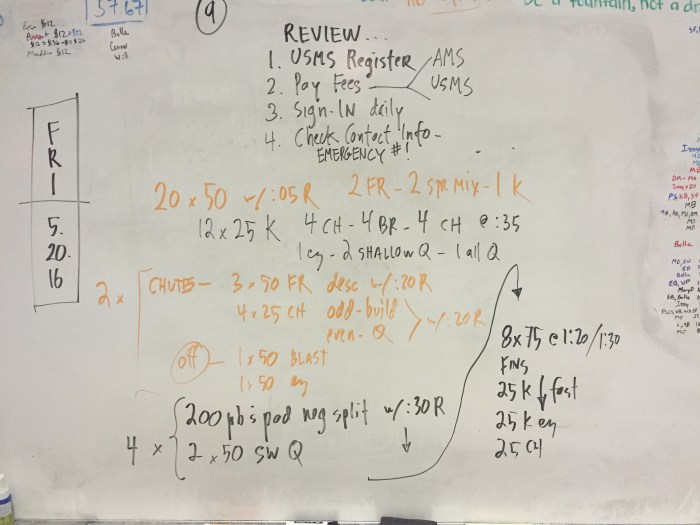 5767
9
Bella
Will
REVIEW...
1. USMS Register AMS
2. Pay Fees USMS
3. Sign-IN daily
4. Check Contact Info-
EMERGENCY #!
FRI
5.
20.
16
20 x 50 w/:05 R 2 FR - 2 SPR MIX - 1 K
12 x 25 K 4 CH - 4 BR - 4 CH @ :35
1 ey - 2 SHALLOW Q - 1 all Q
2 x CHUTES - 3 x 50 FR desc w/:20R
4 x 25 CH odd-build
even-Q w/:20R
off - 1 x 50 BLAST
1 x 50 ey
4 x
200 pb's pad neg split w/:30R
2 x 50 SW Q
8 x 75 @ 1:20/1:30
FINS
25 K fast
25 K ey
25 CH